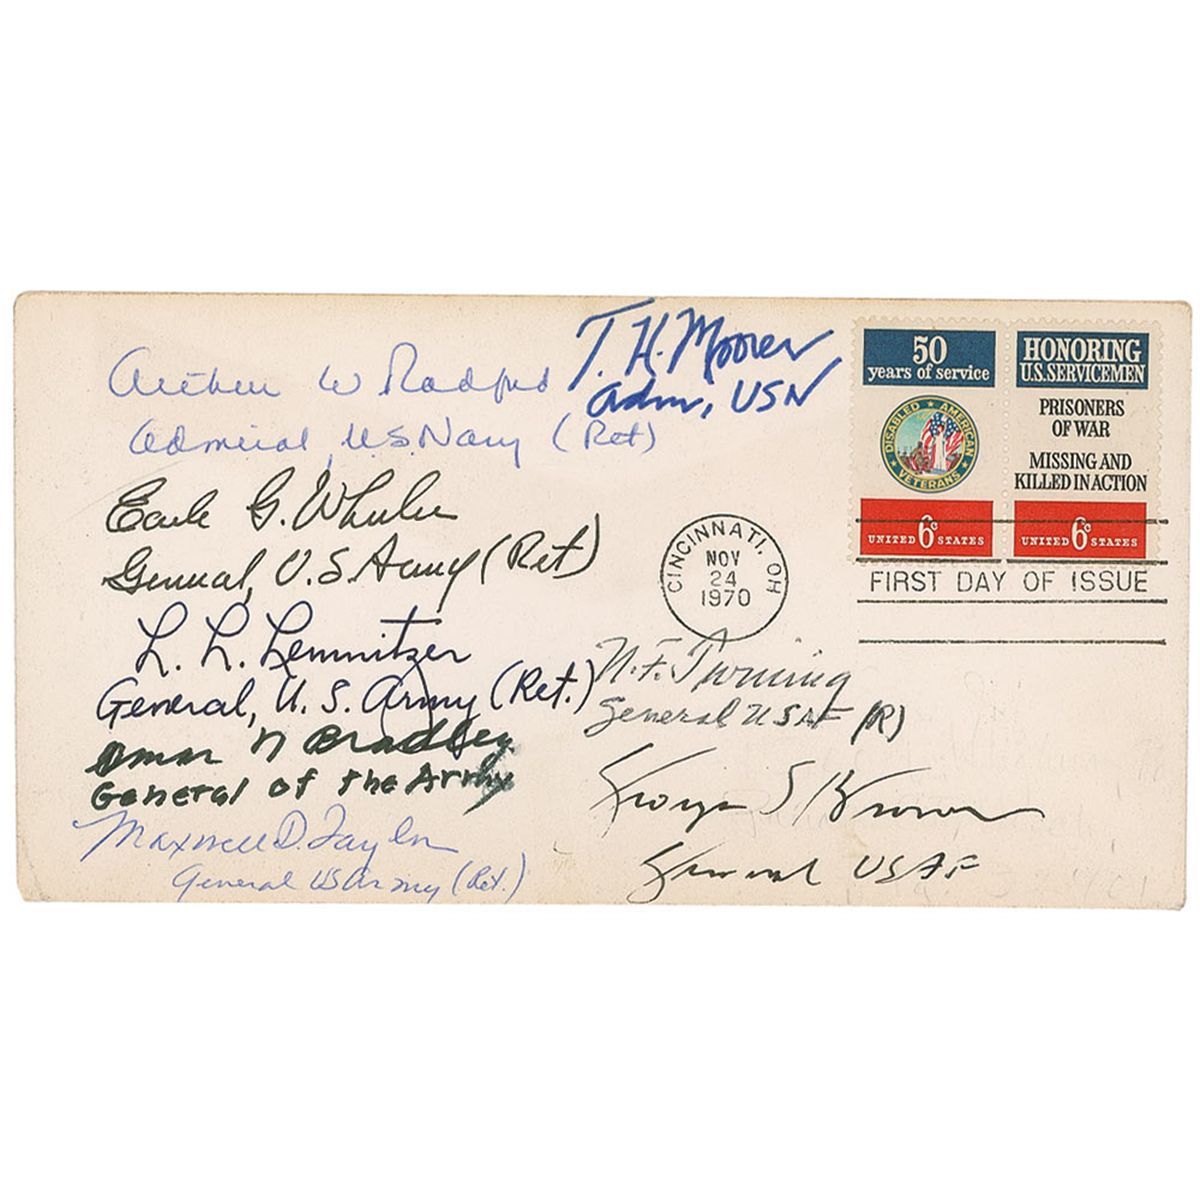 Arthur W Radford
Admiral, U.S. Navy (Ret)
T. H. Moorer
Adm, USN
Earle G. Wheeler
General, U.S. Army (Ret)
L. L. Lemnitzer
General, U.S. Army (Ret.)
Omar N Bradley
General of the Army
Maxwell D. Taylor
General US Army (Ret.)
50
years of service
DISABLED AMERICAN VETERANS
UNITED 6c STATES
HONORING
U.S. SERVICEMEN
PRISONERS
OF WAR
MISSING AND
KILLED IN ACTION
UNITED 6c STATES
CINCINNATI, OH
NOV
24
1970
FIRST DAY OF ISSUE
N. F. Twining
General USAF (R)
George S Brown
General USAF